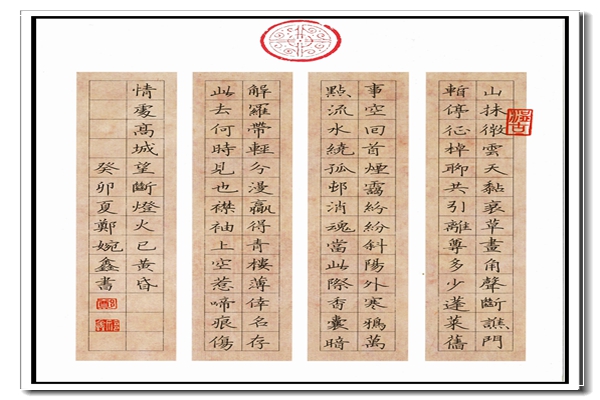 山抹微雲天黏衰草畫角聲斷譙門
暫停征棹聊共引離尊多少蓬萊舊
事空回首煙靄紛紛斜陽外寒鴉萬
點流水繞孤邨消魂當此際香囊暗
解羅帶輕分漫贏得青樓薄倖名存
此去何時見也襟袖上空惹啼痕傷
情處高城望斷燈火已黃昏
癸卯夏鄭婉鑫書